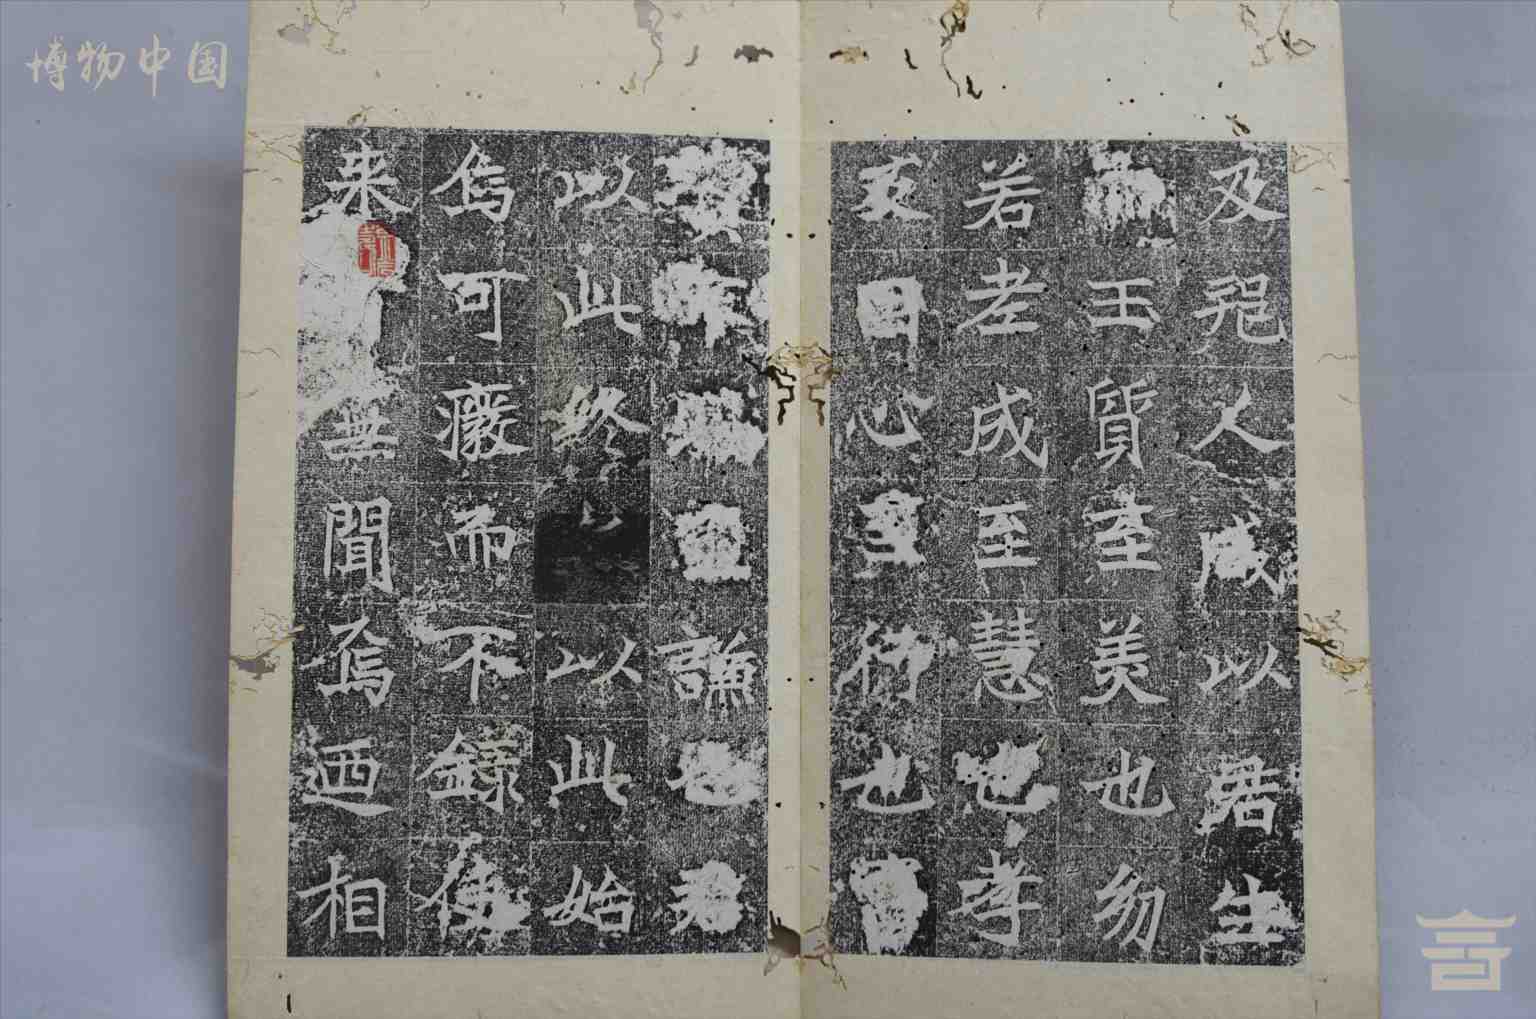 博物中国
及人咸以君生
王質至美也幼
若老成至慧也孝
友因心至行也富
至謙也君
以此終以此始
焉可癈而不錄使
来無聞焉迺相